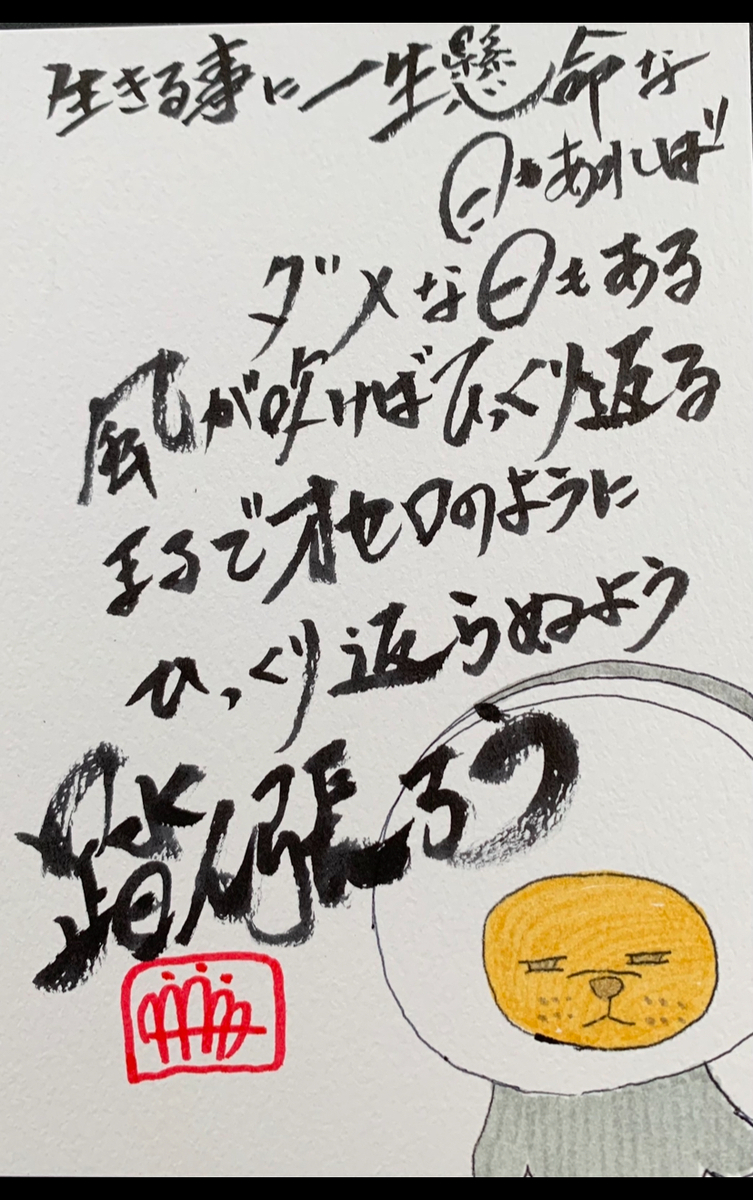 生きる事に一生懸命な
日もあれば
ダメな日もある
風が吹けばひっくり返る
まるでオセロのように
ひっくり返らぬよう
踏ん張ろう